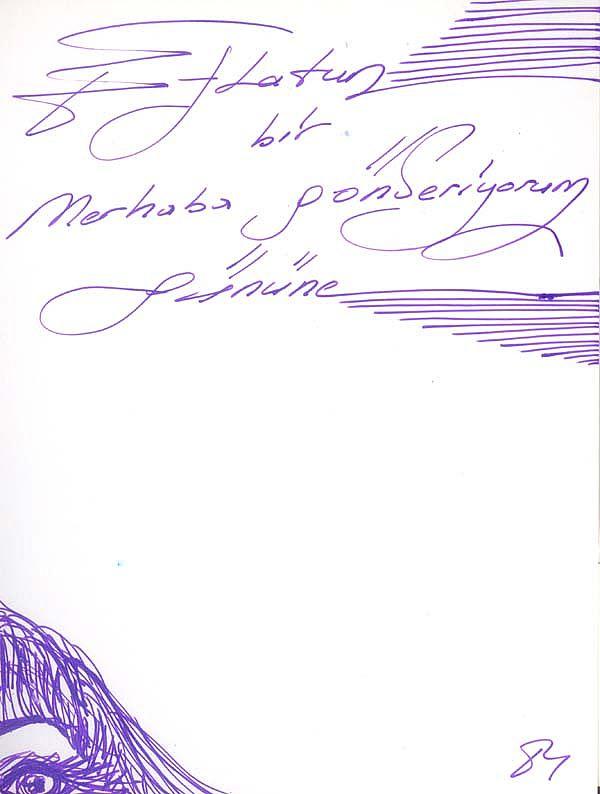 Eflatun
bir
Merhaba gönderiyorum
gününe
84